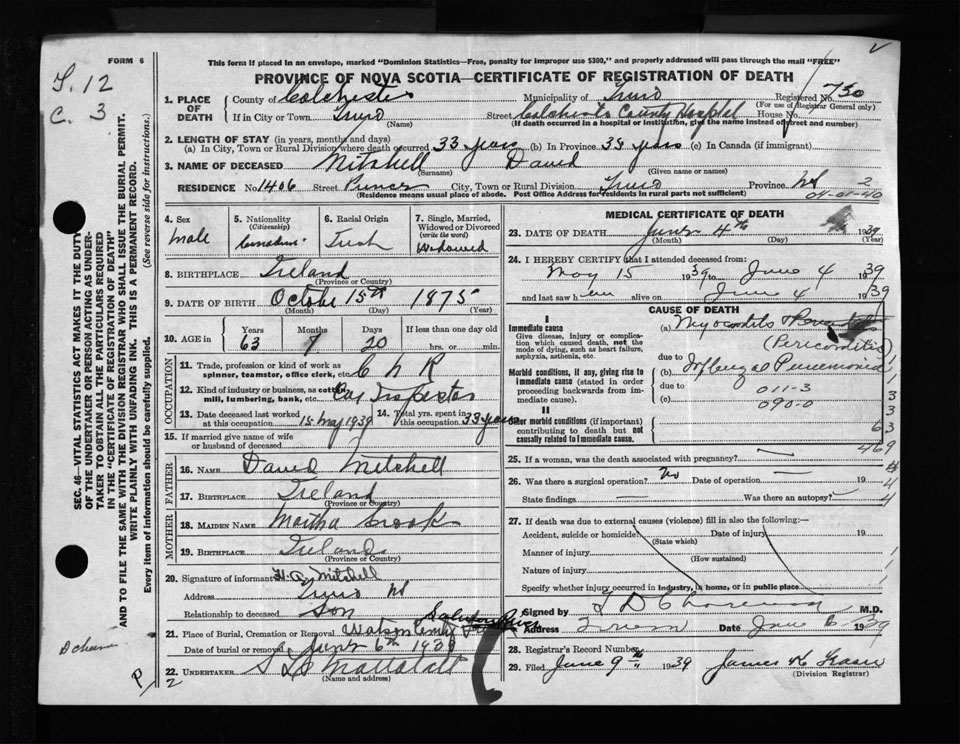 FORM 6
This form if placed in an envelope, marked "Dominion Statistics—Free, penalty for improper use $300," and properly addressed will pass through the mail "FREE"
PROVINCE OF NOVA SCOTIA—CERTIFICATE OF REGISTRATION OF DEATH
1. PLACE OF DEATH
County of Colchester Municipality of Truro Registered No. 730
(For use of Registrar General only)
If in City or Town Truro Street Colchester County Hospital House No.
(Name) (If death occurred in a hospital or institution, give the name instead of street and number)
2. LENGTH OF STAY (in years, months and days)
(a) In City, Town or Rural Division where death occurred 33 years (b) In Province 33 years (c) In Canada (if immigrant)
3. NAME OF DECEASED Mitchell David
(Surname) (Given name or names)
RESIDENCE No. 1406 Street Prince City, Town or Rural Division Truro Province NS
(Residence means usual place of abode. Post Office Address for residents in rural parts not sufficient)
2
04-01-40
4. Sex
male
5. Nationality
(Citizenship)
Canadian
6. Racial Origin
Irish
7. Single, Married, Widowed or Divorced
(write the word)
Widowed
8. BIRTHPLACE Ireland
(Province or Country)
9. DATE OF BIRTH October 15th 1875
(Month) (Day) (Year)
10. AGE in
Years Months Days If less than one day old
63 7 20 hrs. or min.
OCCUPATION
11. Trade, profession or kind of work as spinner, teamster, office clerk, etc. C N R
12. Kind of industry or business, as cotton mill, lumbering, bank, etc. Car Inspector
13. Date deceased last worked at this occupation 15 May 1939
14. Total yrs. spent in this occupation 33 years
15. If married give name of wife or husband of deceased
FATHER
16. NAME David Mitchell
17. BIRTHPLACE Ireland
(Province or Country)
MOTHER
18. MAIDEN NAME Martha Crook
19. BIRTHPLACE Ireland
(Province or Country)
20. Signature of informant H. A. Mitchell
Address Truro NS
Relationship to deceased Son
21. Place of Burial, Cremation or Removal Watson Cemetery Salmon River
Date of burial or removal June 6th 1939
22. UNDERTAKER
(Name and address)
MEDICAL CERTIFICATE OF DEATH
23. DATE OF DEATH June 4th 1939
(Month) (Day) (Year)
24. I HEREBY CERTIFY that I attended deceased from:
May 15 1939 to June 4 1939
and last saw him alive on June 4 1939
CAUSE OF DEATH
I
Immediate cause
Give disease, injury or complication which caused death, not the mode of dying, such as heart failure, asphyxia, asthenia, etc.
(a) Myocarditis
(Pericarditis)
Morbid conditions, if any, giving rise to immediate cause (stated in order proceeding backwards from immediate cause).
due to
(b) Influenzal Pneumonia
due to 011-3
(c) 090-0
II
Other morbid conditions (if important) contributing to death but not causally related to immediate cause.
1
1
3
3
63
469
4
4
1
1
1
25. If a woman, was the death associated with pregnancy?
26. Was there a surgical operation? No Date of operation 19
State findings Was there an autopsy?
27. If death was due to external causes (violence) fill in also the following:—
Accident, suicide or homicide? Date of injury 19
(State which)
Manner of injury
(How sustained)
Nature of injury
Specify whether injury occurred in industry, in home, or in public place
Signed by M.D.
Address Truro Date June 6 1939
28. Registrar's Record Number
29. Filed June 9th 1939 James K
(Division Registrar)
T. 12
C. 3
SEC. 46—VITAL STATISTICS ACT MAKES IT THE DUTY OF THE UNDERTAKER OR PERSON ACTING AS UNDERTAKER TO OBTAIN ALL THE PARTICULARS REQUIRED IN THE "CERTIFICATE OF REGISTRATION OF DEATH"
AND TO FILE THE SAME WITH THE DIVISION REGISTRAR WHO SHALL ISSUE THE BURIAL PERMIT.
WRITE PLAINLY WITH UNFADING INK. THIS IS A PERMANENT RECORD.
Every item of information should be carefully supplied. (See reverse side for instructions.)
P
2